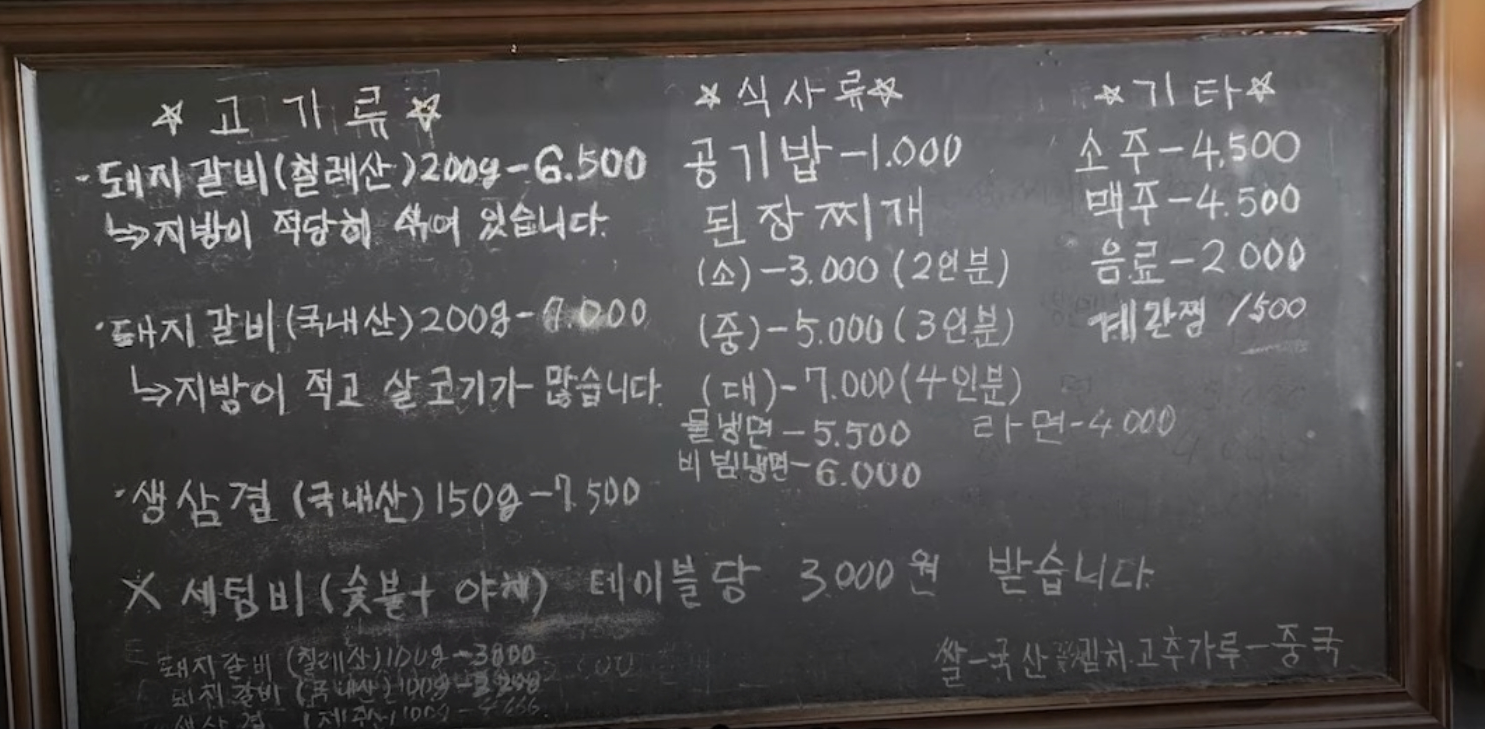 ☆ 고 기 류 ☆
·돼지갈비(칠레산)200g-6.500
↳지방이 적당히 섞여 있습니다.
·돼지갈비(국내산)200g-7.000
↳지방이 적고 살코기가 많습니다.
·생삼겹 (국내산)150g-7.500
☆식사류☆
공기밥-1.000
된장찌개
(소)-3.000 (2인분)
(중)-5.000 (3인분)
(대)-7.000 (4인분)
물냉면-5.500
비빔냉면-6.000
☆기타☆
소주-4,500
맥주-4.500
음료-2 000
계란찜 1500
라면-4000
X 세팅비(숯불+ 야채) 테이블당 3.000원 받습니다.
돼지갈비 (칠레산)100g-
돼지갈비 (국내산)100g-
생삼겹
쌀-국산 김치.고추가루-중국